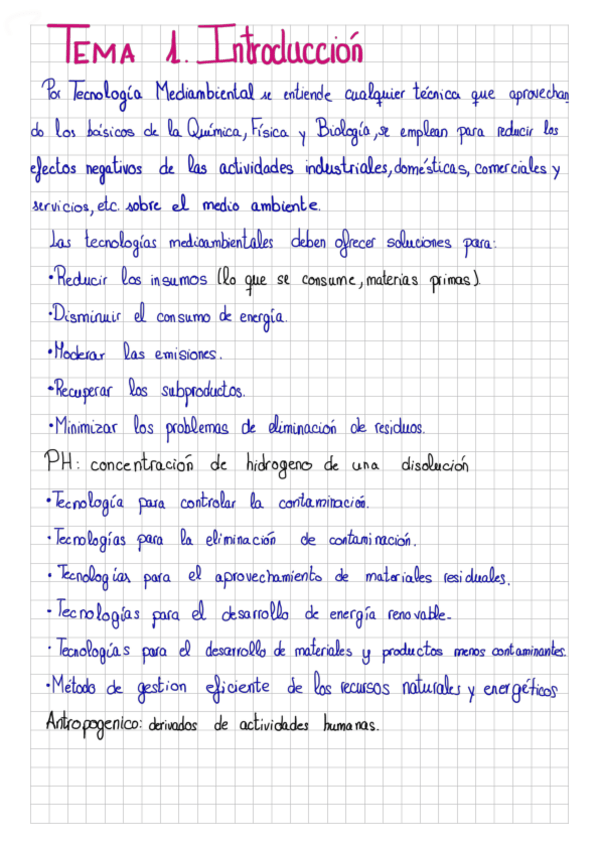 TEMA 1. Introducción
Por Tecnología Mediambiental se entiende cualquier técnica que aprovechan
do los básicos de la Química, Física y Biología, se emplean para reducir los
efectos negativos de las actividades industriales, domésticas, comerciales y
servicios, etc. sobre el medio ambiente.
Las tecnologías medioambientales deben ofrecer soluciones para:
•Reducir los insumos (lo que se consume, materias primas)
•Disminuir el consumo de energía.
•Moderar las emisiones.
•Recuperar los subproductos.
•Minimizar los problemas de eliminación de residuos.
PH: concentración de hidrogeno de una disolución
•Tecnología para controlar la contaminación.
•Tecnologías para la eliminación de contaminación.
•Tecnologías para el aprovechamiento de materiales residuales.
•Tecnologías para el desarrollo de energía renovable.
•Tecnologías para el desarrollo de materiales y productos menos contaminantes.
•Método de gestion eficiente de los recursos naturales y energéticos
Antropogenico: derivados de actividades humanas.